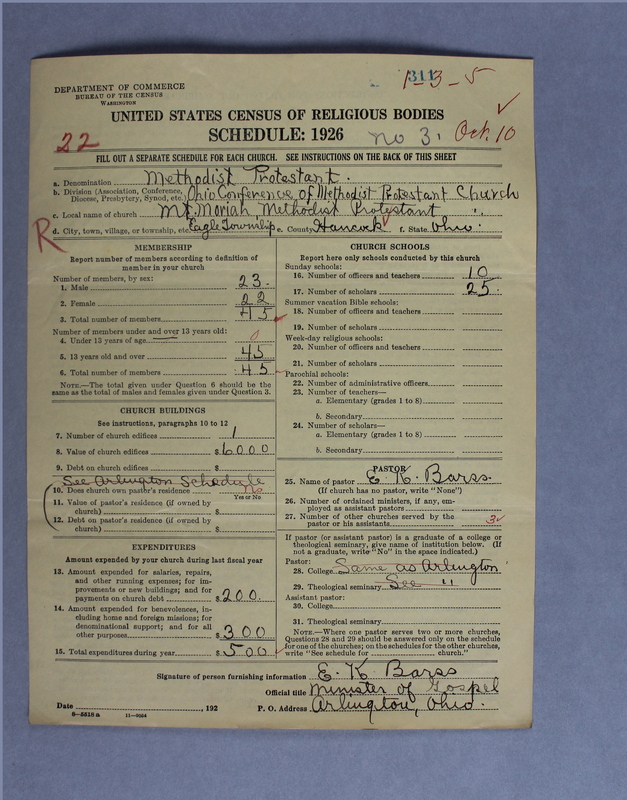 311
1-3-5
DEPARTMENT OF COMMERCE
BUREAU OF THE CENSUS
WASHINGTON
UNITED STATES CENSUS OF RELIGIOUS BODIES
22 SCHEDULE: 1926 no 3. Oct. 10
FILL OUT A SEPARATE SCHEDULE FOR EACH CHURCH. SEE INSTRUCTIONS ON THE BACK OF THIS SHEET
a. Denomination Methodist Protestant.
b. Division (Association, Conference, Diocese, Presbytery, Synod, etc.) Ohio Conference of Methodist Protestant Church
c. Local name of church Mt. Moriah Methodist Protestant
R
d. City, town, village, or township, etc. Eagle Township e. County Hancock f. State Ohio.
MEMBERSHIP
Report number of members according to definition of
member in your church
Number of members, by sex:
1. Male 23.
2. Female 22
3. Total number of members 45
Number of members under and over 13 years old:
4. Under 13 years of age 0
5. 13 years old and over 45
6. Total number of members 45
NOTE.—The total given under Question 6 should be the
same as the total of males and females given under Question 3.
CHURCH BUILDINGS
See instructions, paragraphs 10 to 12
7. Number of church edifices 1
8. Value of church edifices $6000
9. Debt on church edifices $
See Arlington Schedule
10. Does church own pastor's residence No
Yes or No
11. Value of pastor's residence (if owned by
church) $
12. Debt on pastor's residence (if owned by
church) $
EXPENDITURES
Amount expended by church during last fiscal year
13. Amount expended for salaries, repairs,
and other running expenses; for im-
provements or new buildings; and for
payments on church debt $200.
14. Amount expended for benevolences, in-
cluding home and foreign missions; for
denominational support; and for all
other purposes $300
15. Total expenditures during year $500
CHURCH SCHOOLS
Report here only schools conducted by this church
Sunday schools:
16. Number of officers and teachers 10
17. Number of scholars 25
Summer vacation Bible schools:
18. Number of officers and teachers
19. Number of scholars
Week-day religious schools:
20. Number of officers and teachers
21. Number of scholars
Parochial schools:
22. Number of administrative officers
23. Number of teachers—
a. Elementary (grades 1 to 8)
b. Secondary
24. Number of scholars—
a. Elementary (grades 1 to 8)
b. Secondary
PASTOR
25. Name of pastor E. K. Barss
(If church has no pastor, write "None")
26. Number of ordained ministers, if any, em-
ployed as assistant pastors
27. Number of other churches served by the
pastor or his assistants 3
If pastor (or assistant pastor) is a graduate of a college or
theological seminary, give name of institution below. (If
not a graduate, write "No" in the space indicated.)
Pastor:
28. College Same as Arlington
29. Theological seminary See "
Assistant pastor:
30. College
31. Theological seminary
NOTE.—Where one pastor serves two or more churches,
Questions 28 and 29 should be answered only on the schedule
for one of the churches; on the schedules for the other churches,
write "See schedule for church."
Signature of person furnishing information E. K Barss
Official title Minister of Gospel
Date , 192 P. O. Address Arlington, Ohio.
8—5518 a 11—9094